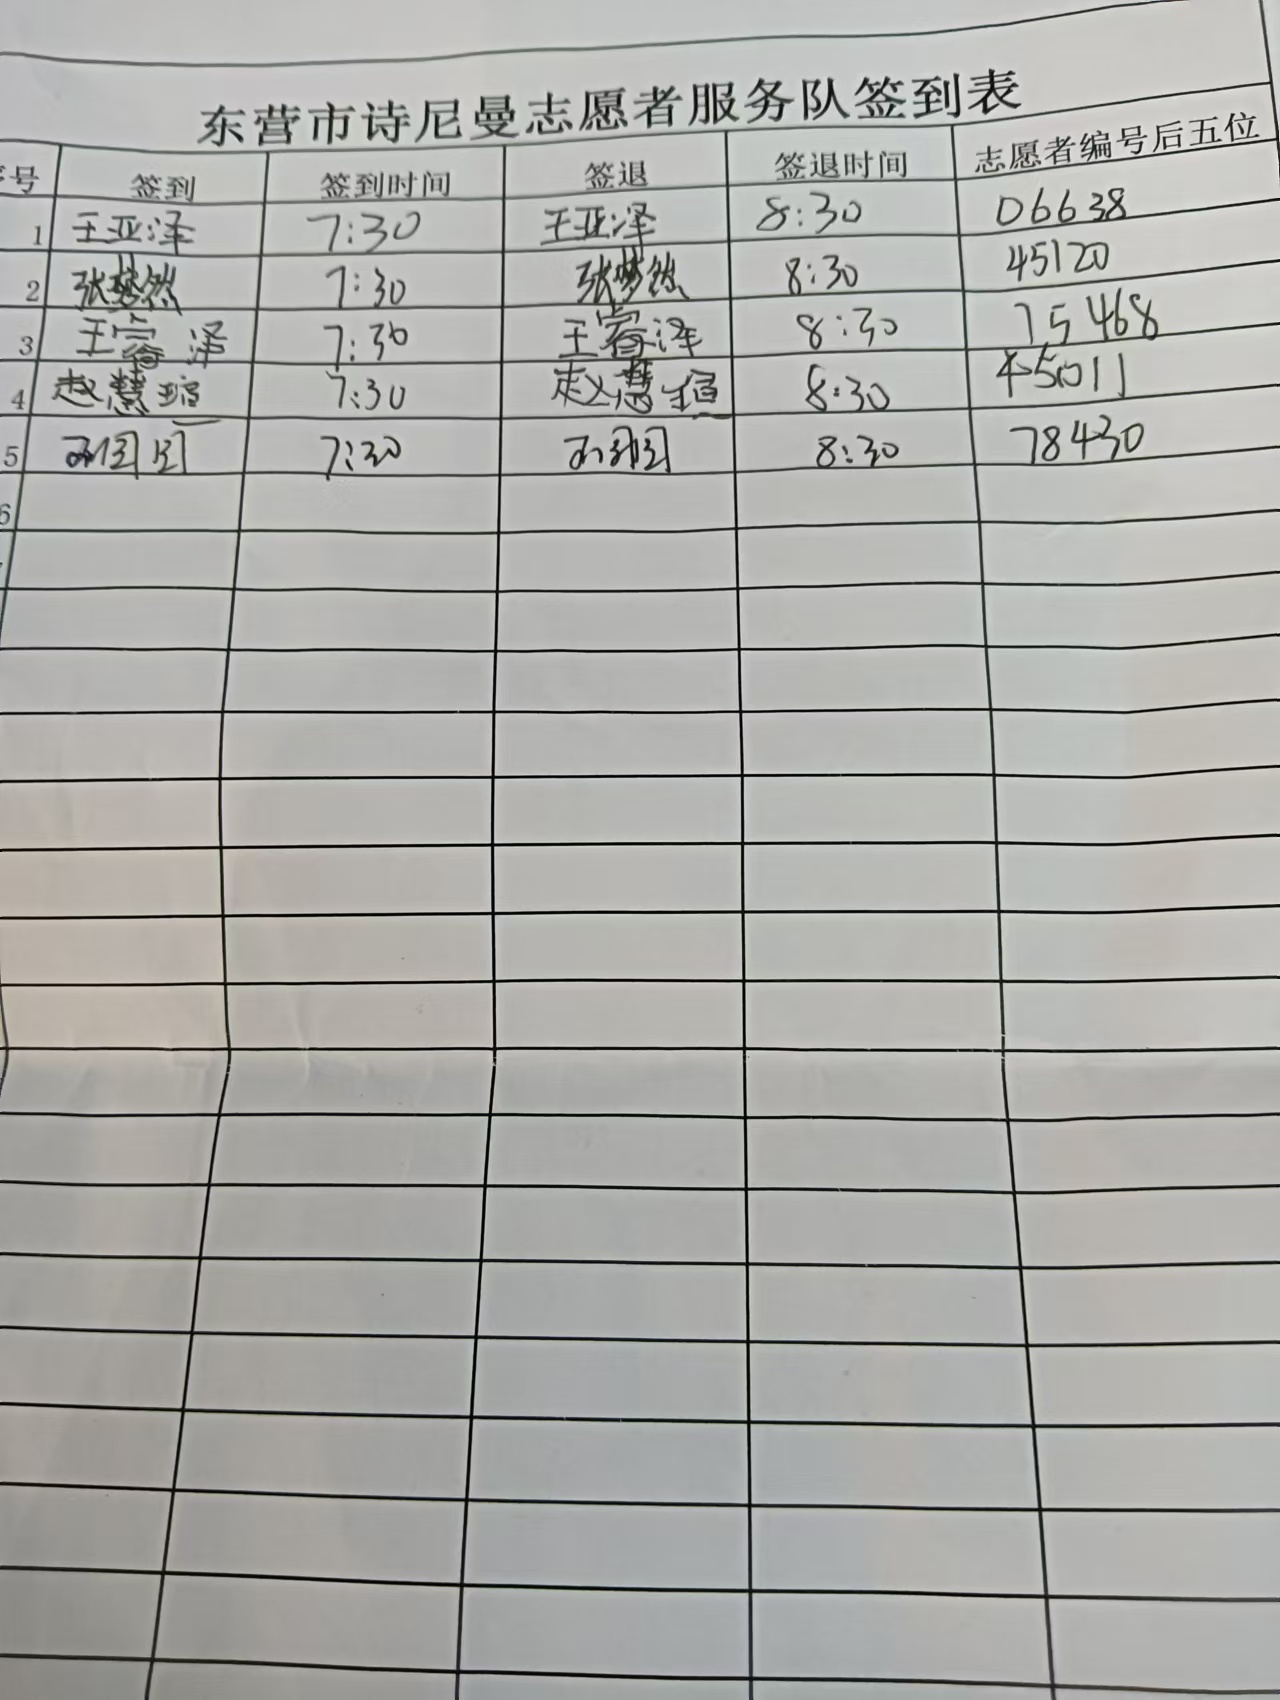 东营市诗尼曼志愿者服务队签到表
序号 签到 签到时间 签退 签退时间 志愿者编号后五位
1 王亚泽 7:30 王亚泽 8:30 06638
2 张梦然 7:30 张梦然 8:30 45120
3 王睿泽 7:30 王睿泽 8:30 75468
4 赵慧瑄 7:30 赵慧瑄 8:30 45011
5 7:30 8:30 78430
6